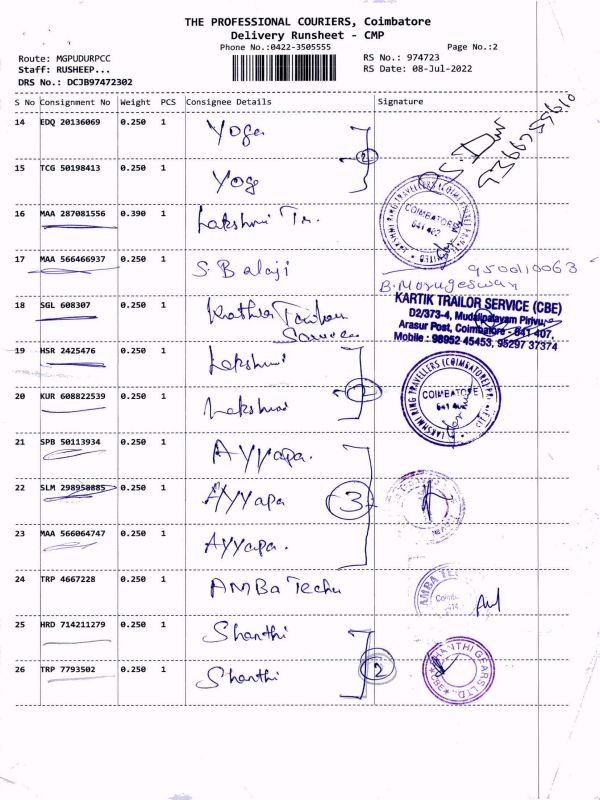 THE PROFESSIONAL COURIERS, Coimbatore
Delivery Runsheet - CMP
Phone No.:0422-3505555
Page No.:2
Route: MGPUDURPCC
RS No.: 974723
Staff: RUSHEEP...
RS Date: 08-Jul-2022
DRS No.: DCJB97472302
S No Consignment No Weight PCS Consignee Details Signature
14 EDQ 20136069 0.250 1 Yoga
2
15 TCG 50198413 0.250 1 Yog
16 MAA 287081556 0.390 1 Lakshmi Tr.
LAKSHMI RING TRAVELLERS (COIMBATORE) LIMITED
COIMBATORE
641 402
17 MAA 566466937 0.250 1 S. Balaji 9500110063
B. Morugeswan
18 SGL 608307 0.250 1
KARTIK TRAILOR SERVICE (CBE)
D2/373-4, Mudalipalayam Pirivu,
Arasur Post, Coimbatore - 641 407,
Mobile : 98952 45453, 95297 37374
19 HSR 2425476 0.250 1 Lakshmi
2
20 KUR 608822539 0.250 1 Lakshmi
LAKSHMI RING TRAVELLERS (COIMBATORE)
COIMBATORE
21 SPB 50113934 0.250 1 Ayyapa.
22 SLM 298958885 0.250 1 Ayyapa
3
23 MAA 566064747 0.250 1 Ayyapa.
24 TRP 4667228 0.250 1 AMBa Techu
AMBA TEC
25 HRD 714211279 0.250 1 Shanthi
2
26 TRP 7793502 0.250 1 Shanthi
SHANTHI GEARS LTD.
CBE